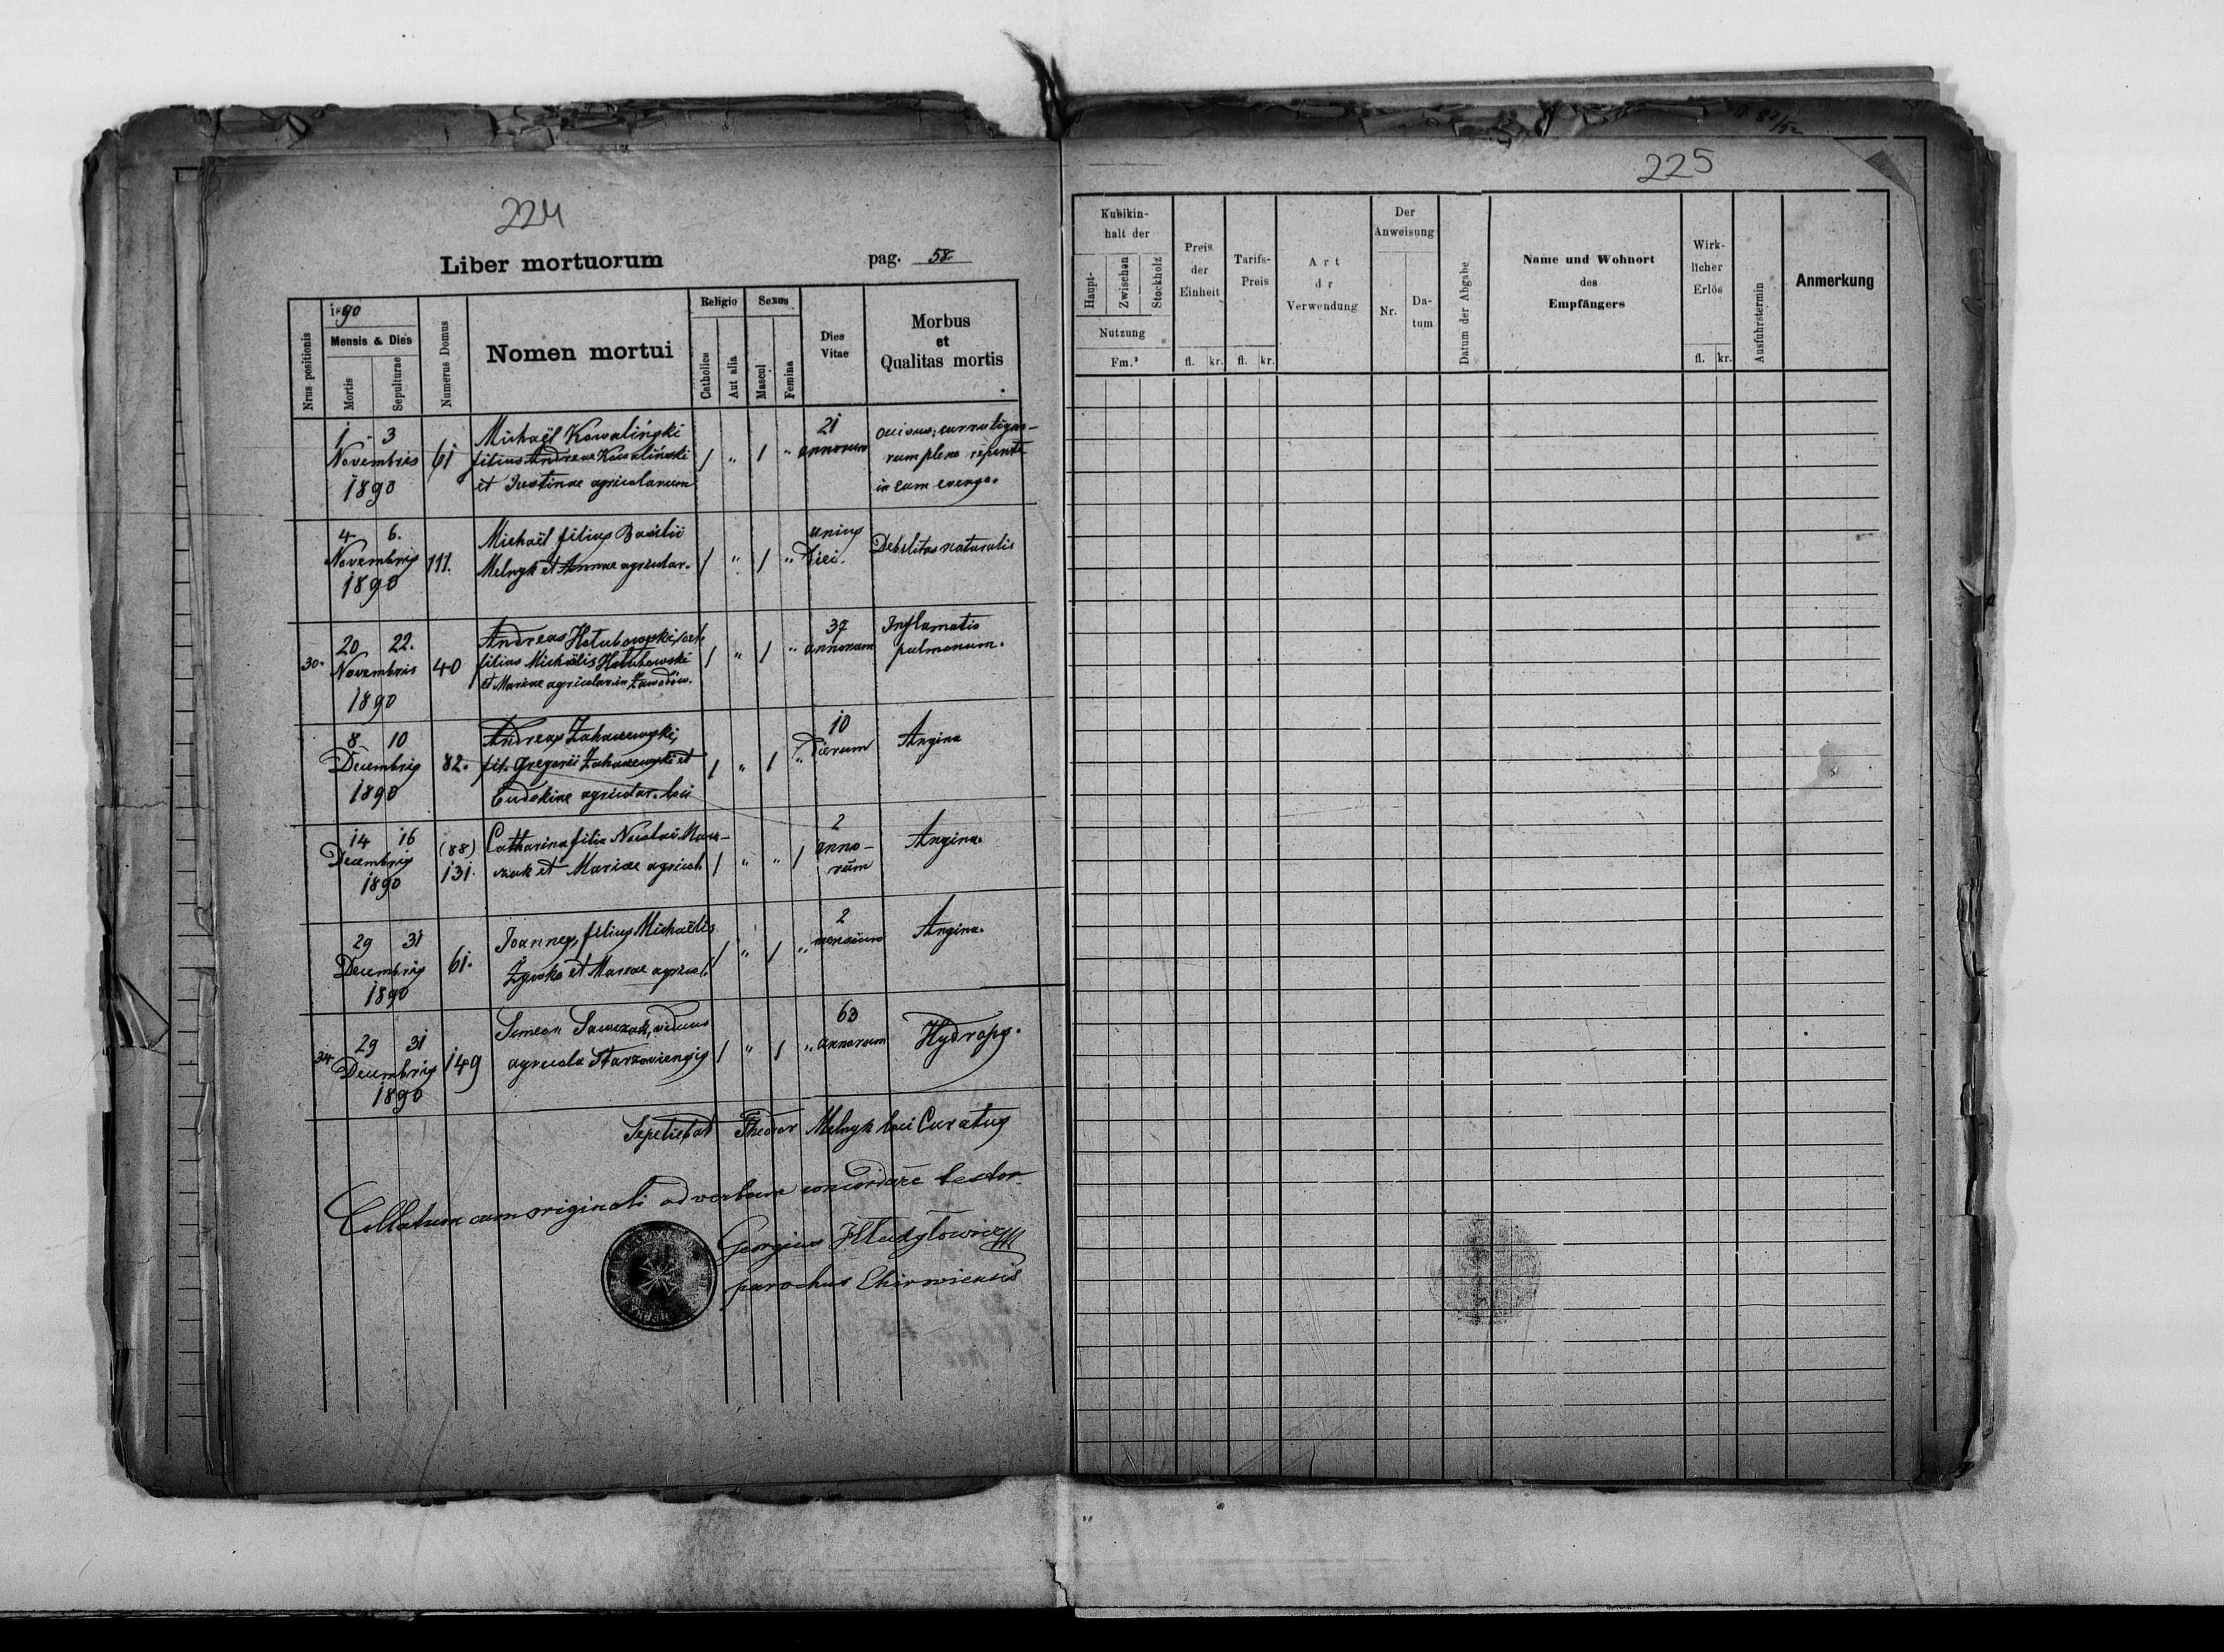 224
Liber mortuorum pag. 58.
Nrus positionis
1890
Mensis & Dies
Mortis
Sepulturae
Numerus Domus
Nomen mortui
Religio
Catholica
Aut alia
Sexus
Mascul
Femina
Dies
Vitae
Morbus
et
Qualitas mortis
1 - 3
Novembris
1890
61
Michaël Kowaliński
filius Andreae Kowaliński
et Justinae agricolarum
1 " 1 "
21
annorum
occisus, curru
rum pleno repente
in eum
4 6.
Novembris
1890
111.
Michaël filius Basilii
Melnyk et Annae agricolar.
1 " 1 "
unius
diei.
Debilitas naturalis
30.
20 22.
Novembris
1890
40
Andreas Hołubowski,
filius Michaëlis Hołubowski
et Mariae agricolar. in Zawadów.
1 " 1 "
37
annorum
Inflamatio
pulmonum.
8 10
Decembris
1890
82.
Andreas
fil. Gregorii et
Eudokiae agricolar. loci
1 " 1 "
10
dierum
Angina
14 16
Decembris
1890
(88)
131.
Catharina filia Nicolai
et Mariae agricol.
1 " " 1
2
anno-
rum
Angina.
29 31
Decembris
1890
61.
Joannes, filius Michaëlis
et Mariae agricol.
1 " 1 "
2
mensium
Angina.
34
29 31
Decembris
1890
149
Simeon Sawczak, viduus
agricola Starzawiensis
1 " 1 "
63
annorum
Hydrops.
Sepeliebat Theodor Melnyk loci Curatus
Collatum cum originali ad verbum concordare testor
Georgius
parochus Chirowiensis
225
Kubikin-
halt der
Haupt-
Zwischen
Stockholz
Nutzung
Fm.³
Preis
der
Einheit
fl. kr.
Tarifs-
Preis
fl. kr.
Art
d r
Verwendung
Der
Anweisung
Nr.
Da-
tum
Datum der Abgabe
Name und Wohnort
des
Empfängers
Wirk-
licher
Erlös
fl. kr.
Ausfuhrstermin
Anmerkung